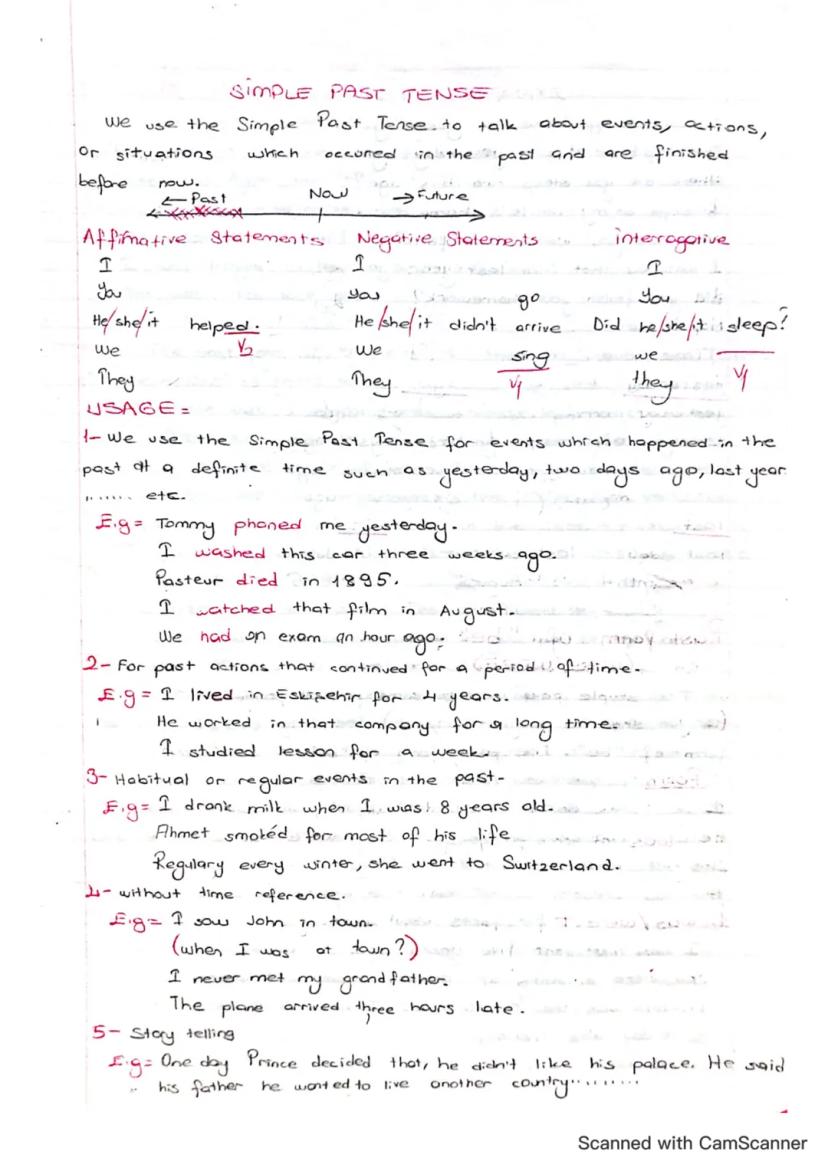 SIMPLE PAST TENSE
We use the Simple Past Tense to talk about events, actions,
or situations which occured in the past and are finished
before now.
← Past Now → Future
Affirmative Statements Negative Statements interrogative
I I I
You you go You
He/she/it helped. He/she/it didn't arrive Did he/she/it sleep?
We V2 We sing we V1
They They V1 they
USAGE =
1- We use the Simple Past Tense for events which happened in the
past at a definite time such as yesterday, two days ago, last year
....... etc.
E.g = Tommy phoned me yesterday.
I washed this car three weeks ago.
Pasteur died in 1895.
I watched that film in August.
We had an exam an hour ago.
2- For past actions that continued for a period of time.
E.g = I lived in Eskişehir for 4 years.
He worked in that company for a long time.
I studied lesson for a week.
3- Habitual or regular events in the past.
E.g = I drank milk when I was 8 years old.
Ahmet smoked for most of his life
Regulary every winter, she went to Switzerland.
4- without time reference.
E.g = I saw John in town.
(when I was at town?)
I never met my grandfather.
The plane arrived three hours late.
5- Story telling
E.g = One day Prince decided that, he didn't like his palace. He said
his father he wanted to live another country.........
Scanned with CamScanner